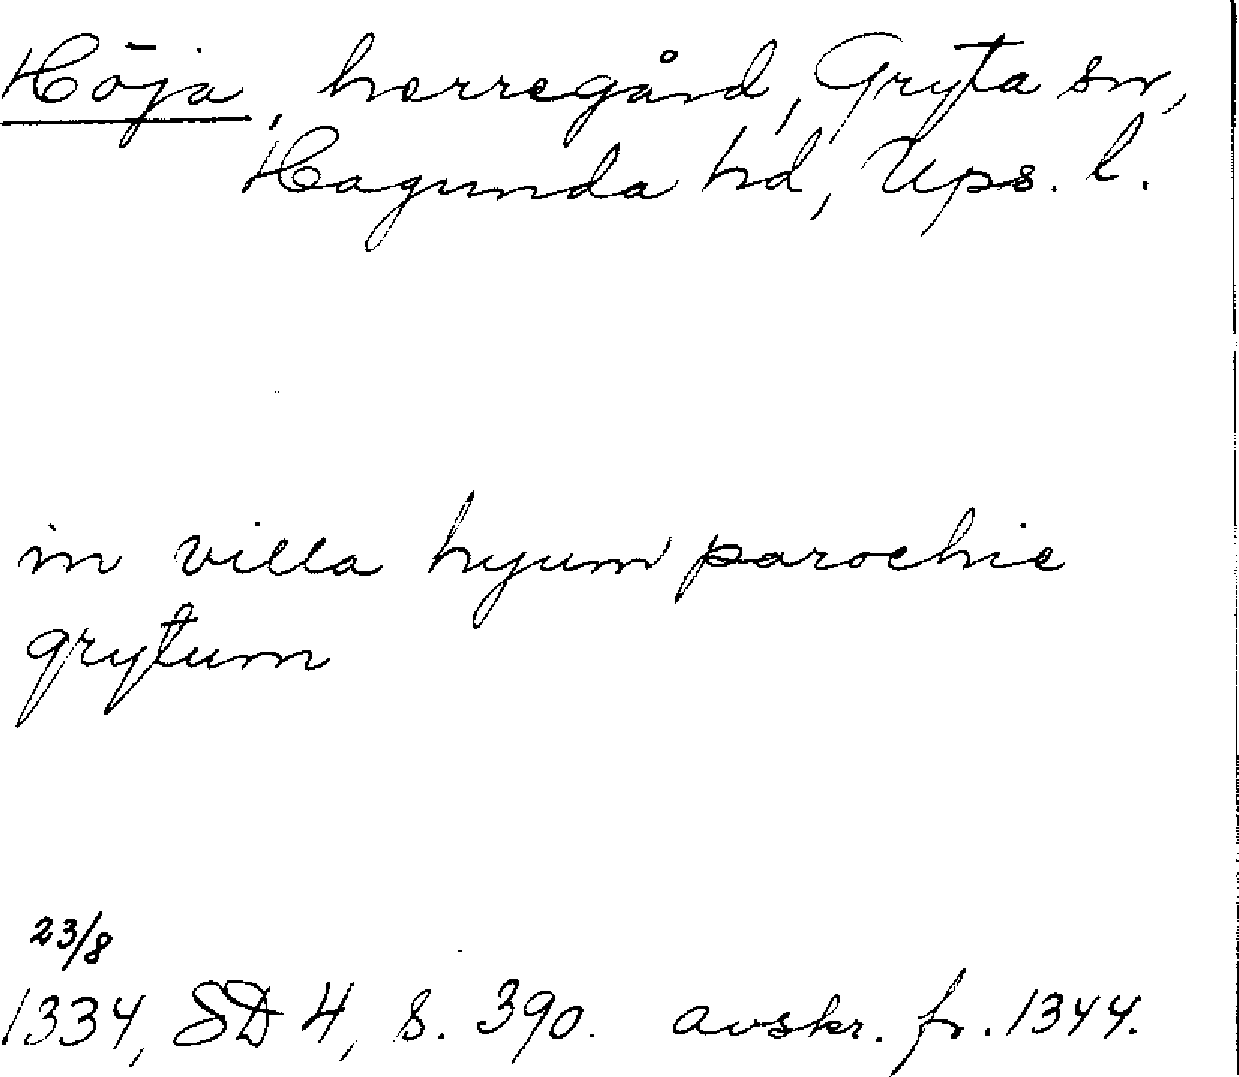 Höja, herregård, Gryta sn,
Hagunda hd, Ups. l.
in villa hyum parochie
grytum
23/8
1334, SD 4, s. 390. avskr. fr. 1344.